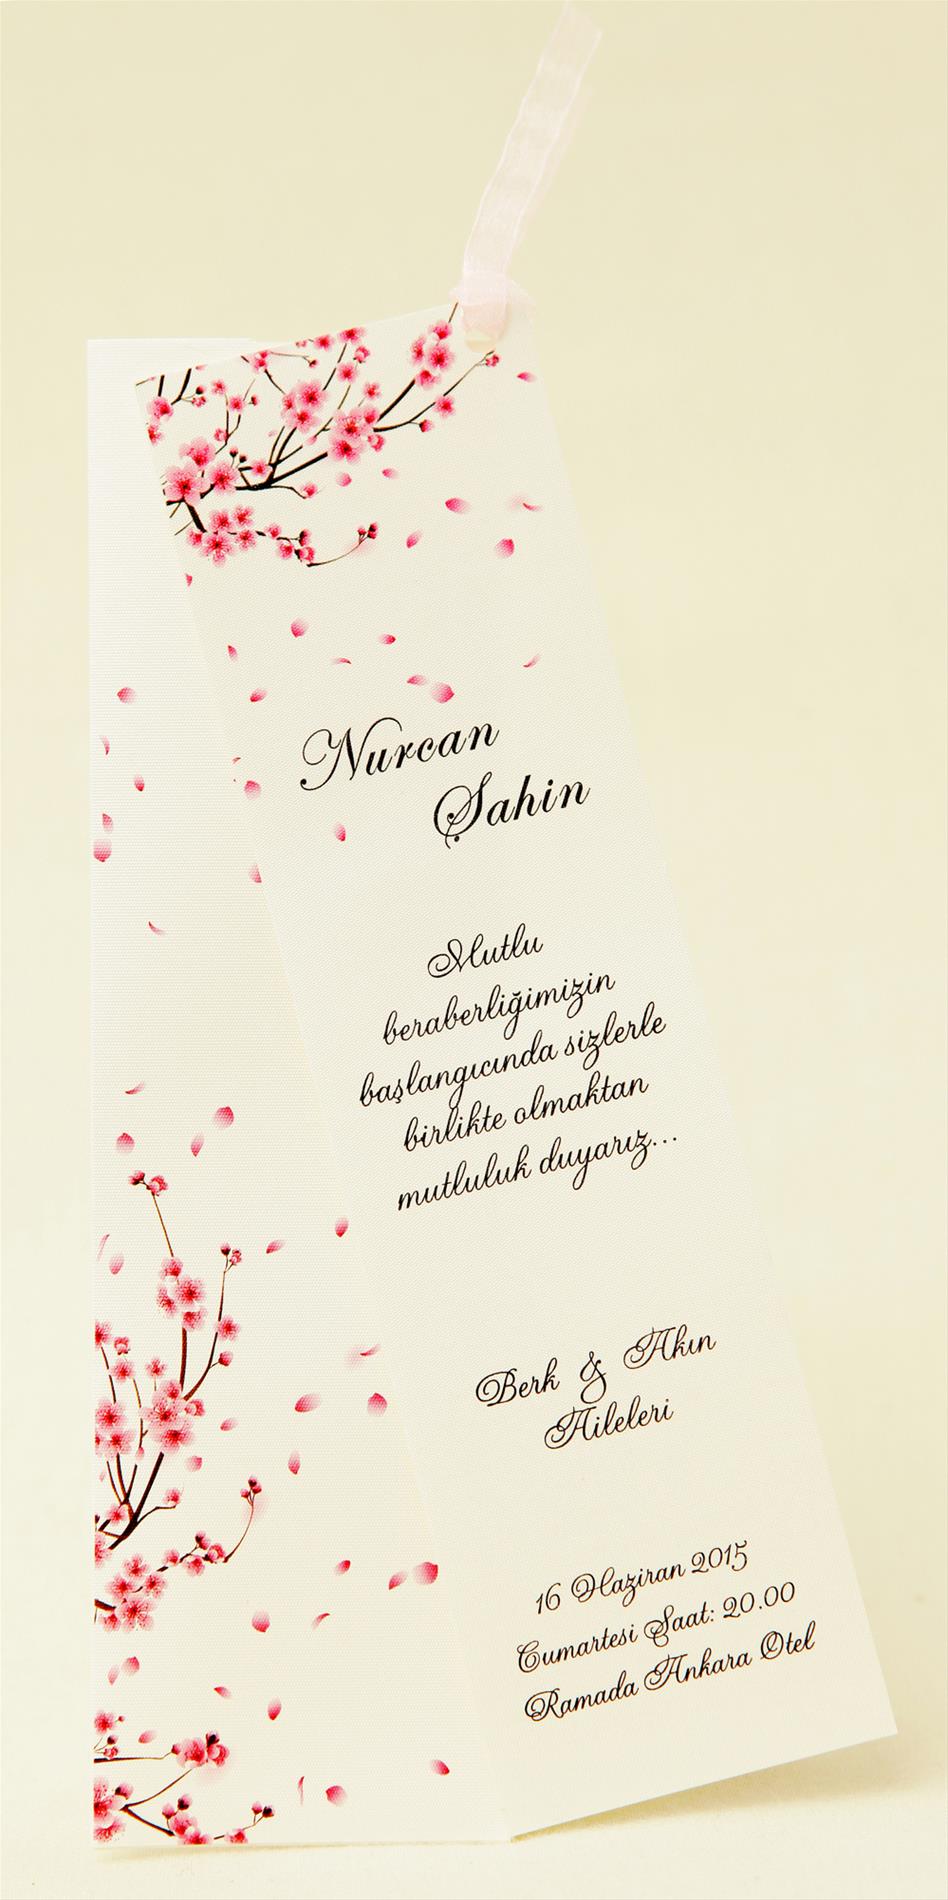 Nurcan
Şahin
Mutlu
beraberliğimizin
başlangıcında sizlerle
birlikte olmaktan
mutluluk duyarız...
Berk & Akın
Aileleri
16 Haziran 2015
Cumartesi Saat: 20.00
Ramada Ankara Otel